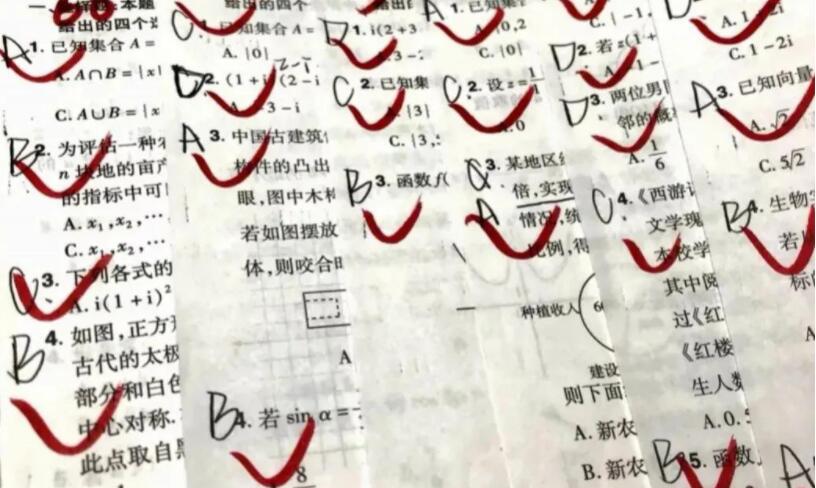 本题
给出的四个
A 1. 已知集合 A =
A. A∩B = {x
C. A∪B = {x
B 2. 为评估一种
n 块地的亩产
的指标中可
A. x₁, x₂, …
C. x₁, x₂, …
3. 下列各式的
A. i(1+i)²
B 4. 如图,正方形
古代的太极
部分和白色
中心对称.
此点取自黑
给出的四个
C 1. 已知集合 A =
A. {0}
D 2. (1+i)(2-i
A. -3-i
2-i
A 3. 中国古建筑
构件的凸出
眼,图中木构
若如图摆放
体,则咬合时
A
B 4. 若 sin α =
8
D 1. i(2+3
C 2. 已知集
A. {3}
C. {3,
B 3. 函数 f(
给出
A 1. 已知集
C. {0}
C 2. 设 z =
A. 0
3. 某地区经
A
倍,实现
情况,统
比例,得
种植收入
6
建设
则下面
A. 新农
B. 新农
C. {-1
D 2. 若 z(1+
D 3. 两位男
邻的概
A. 1/6
C 4. 《西游记
文学瑰
本校学
其中阅
过《红
《红楼
生人数
A. 0.5
B 5. 函数
A. 1-2i
C. 1-2i
A 3. 已知向量
A. √2
C. 5√2
B 4. 生物
若
标
A
A